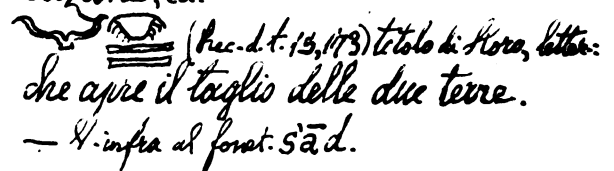 (Rec. d. t. 15, 173) titolo di Horo, letter:
che apre il taglio delle due terre.
— V. infra al fonet. šād.